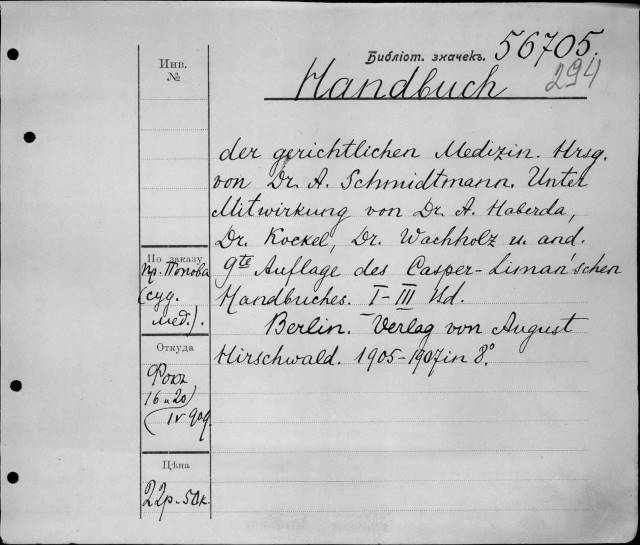 Библіот. значекъ. 56705.
294
Handbuch
der gerichtlichen Medizin. Hrsg.
von Dr. A. Schmidtmann. Unter
Mitwirkung von Dr. A. Haberda,
Dr. Kockel, Dr. Wachholz u. and.
9te Auflage des Casper-Liman'schen
Handbuches. I-III Bd.
Berlin. Verlag von August
Hirschwald. 1905-1907 in 8°.
Инв.
№
По заказу
пр. Попова
(суд.
мед.).
Откуда
16 и 20)
IV 909.
Цѣна
22р. 50к.